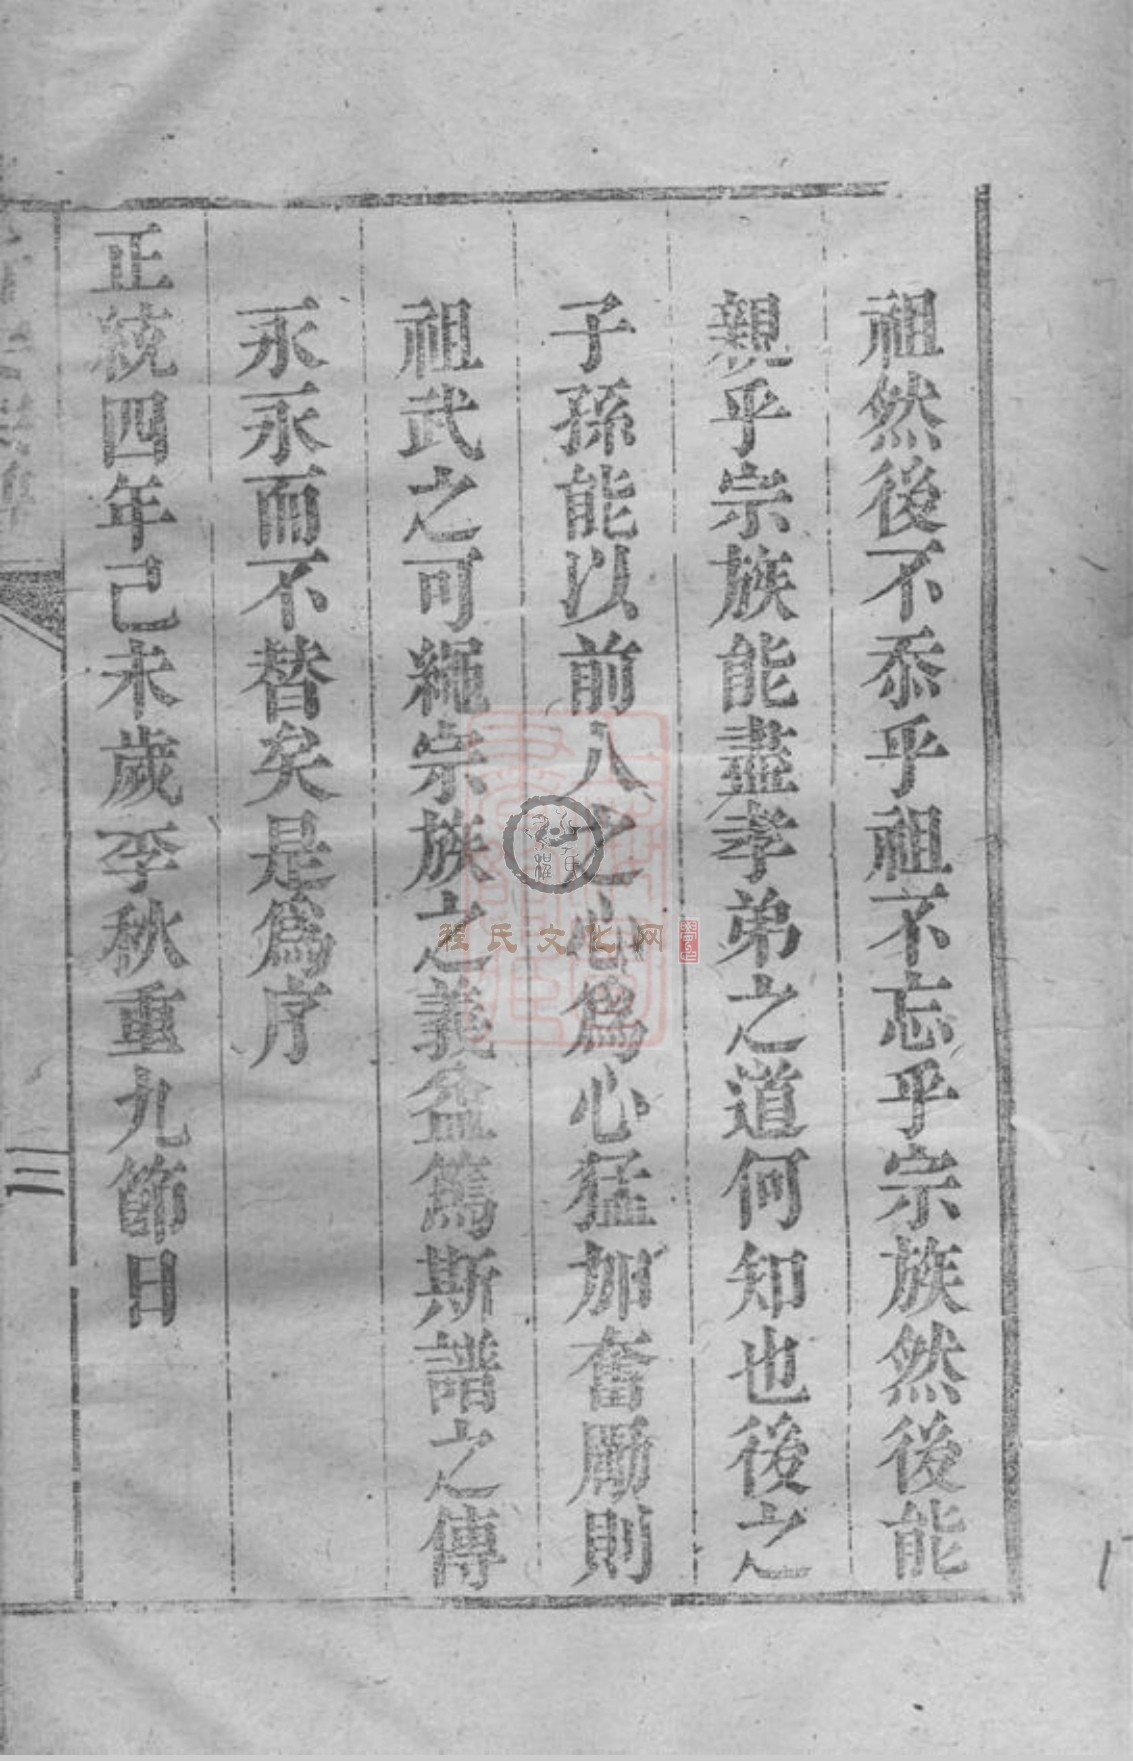 祖然後不忝乎祖不忘乎宗族然後能
親乎宗族能盡孝弟之道何知也後之
子孫能以前人之心爲心猛加奮勵則
祖武之可繩宗族之義益篤斯譜之傳
永永而不替矣是爲序
正統四年己未歲季秋重九節日
三
程氏文化网